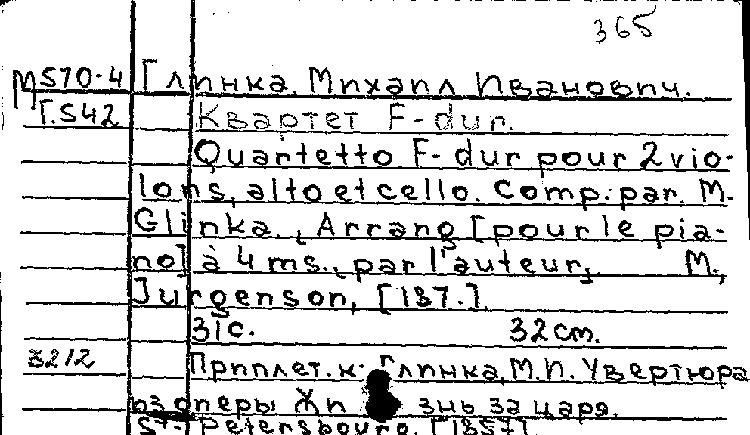 365
М570-4 Глинка, Михаил Иванович.
Г.542 Квартет F-dur.
Quartetto F-dur pour 2 vio-
lons, alto et cello. Comp. par. M.
Glinka., Arrang [pour le pia-
no] à 4 ms., par l'auteur, М.,
Jurgenson, [187.]
31с. 32 cm.
3212 Приплет. к: Глинка, М.И. Увертюра
из оперы Жизнь за царя.
St.-Petersbourg. [1857].